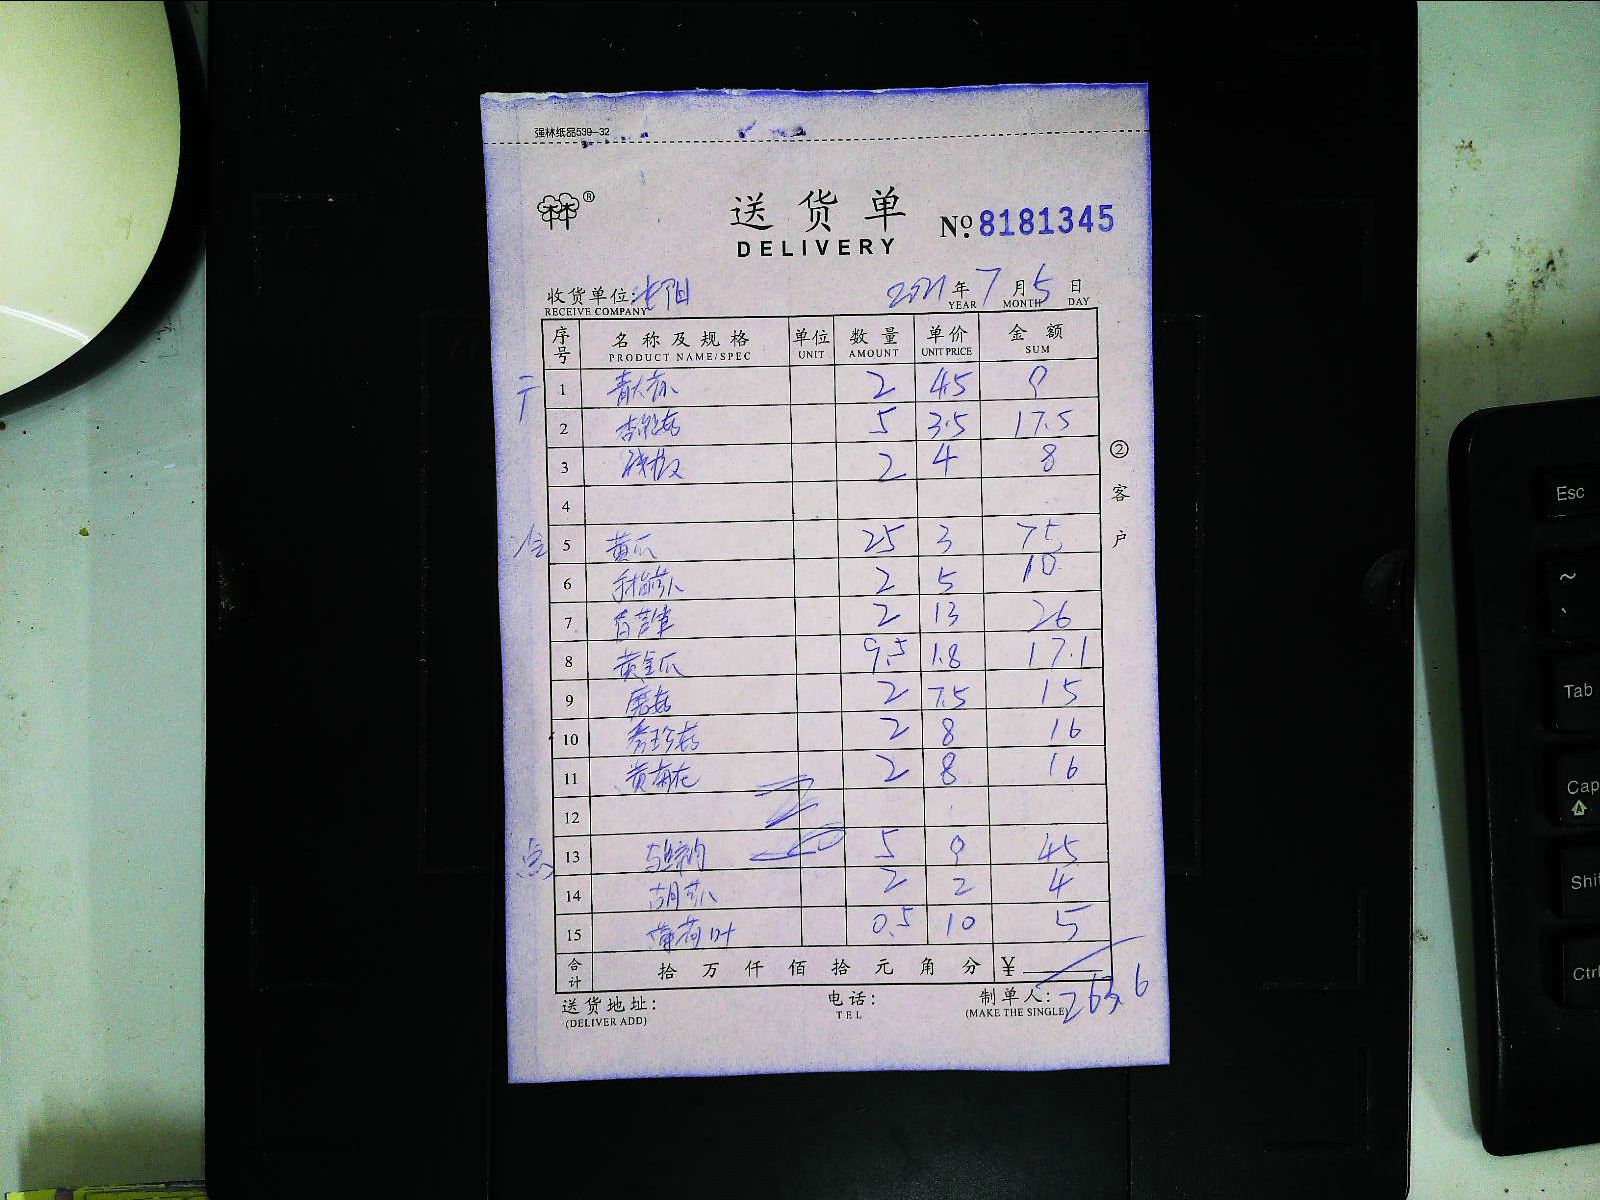 强林纸品539-32
林®
送货单 №8181345
DELIVERY
收货单位: 2021年7月5日
RECEIVE COMPANY YEAR MONTH DAY
序号 名称及规格 单位 数量 单价 金额
PRODUCT NAME/SPEC UNIT AMOUNT UNIT PRICE SUM
1 2 4.5 9
2 杏鲍菇 5 3.5 17.5
3 2 4 8
4
5 黄瓜 25 3 75
6 手指萝卜 2 5 10
7 2 13 26
8 黄金瓜 9.5 1.8 17.1
9 蘑菇 2 7.5 15
10 秀珍菇 2 8 16
11 黄菊花 2 8 16
12
点 13 5 9 45
14 胡萝卜 2 2 4
15 薄荷叶 0.5 10 5
合计 拾万仟佰拾元角分 ¥
263.6
送货地址: 电话: 制单人:
(DELIVER ADD) TEL (MAKE THE SINGLE)
②客户
Esc
~
`
Tab
Cap
Shi
Ctrl